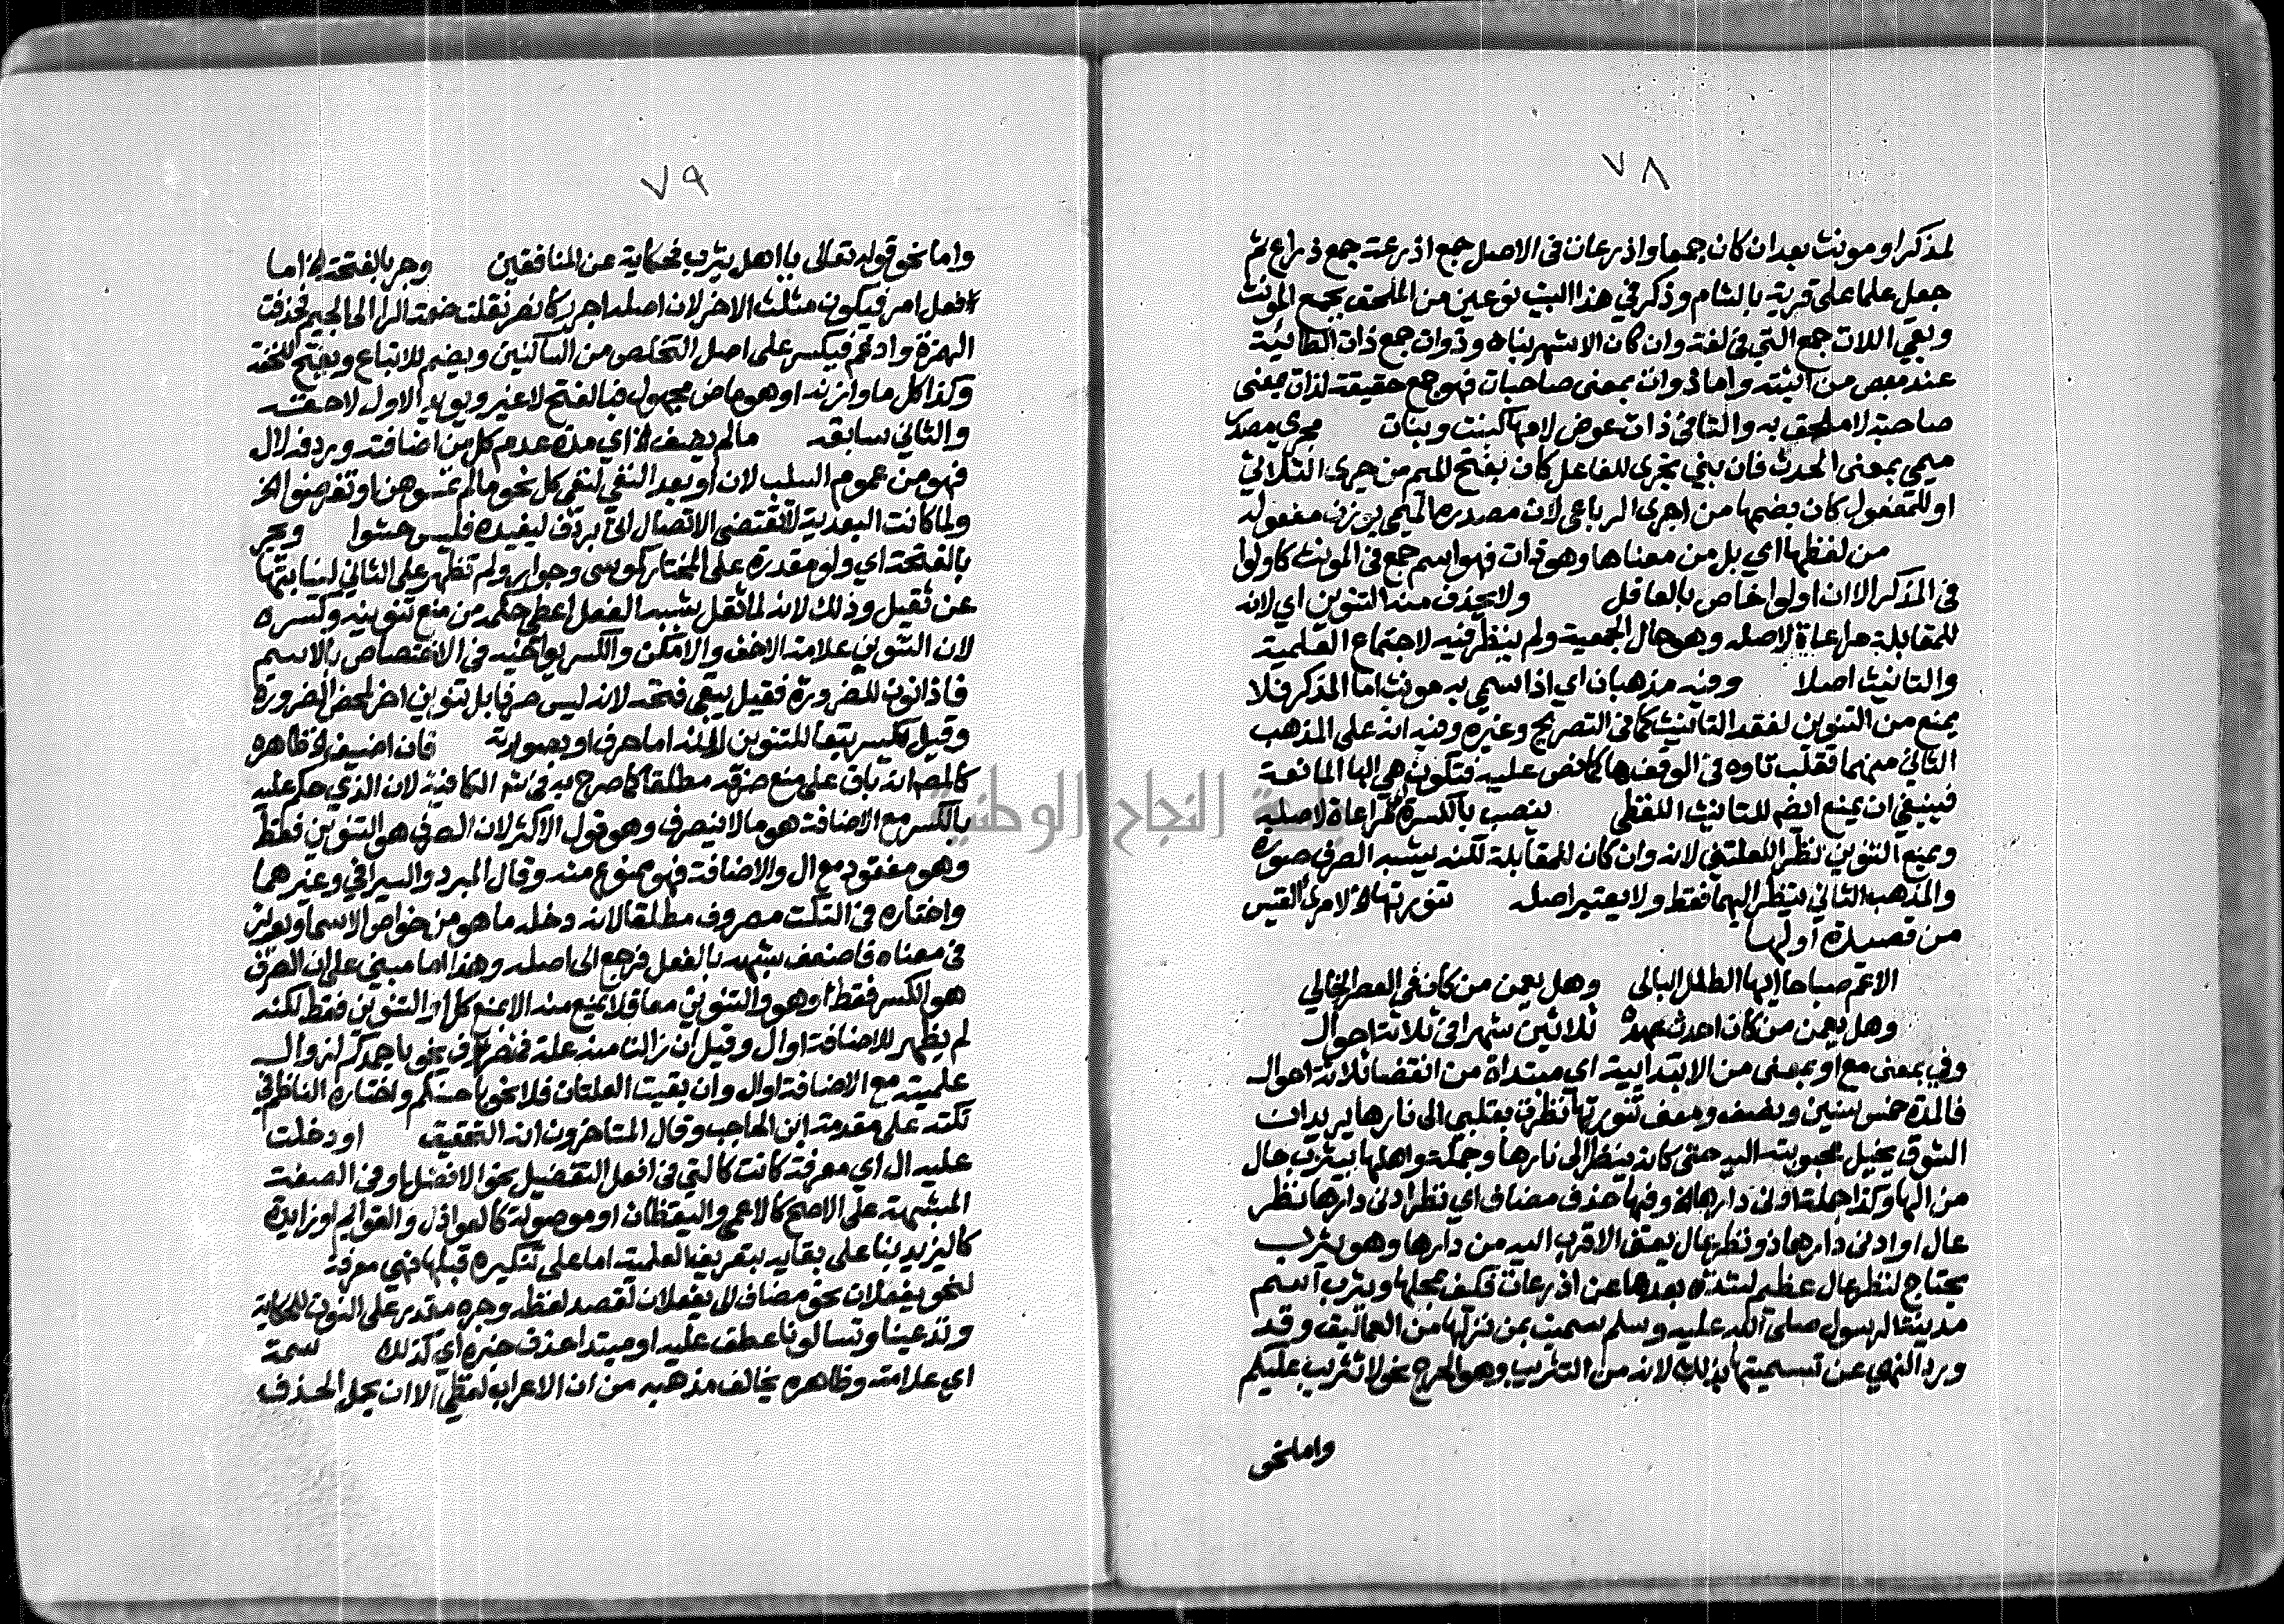 ٧٨
لمذكر او مونث بعد ان كان جمعا واذرعات فى الاصل جمع اذرعة جمع ذراع ثم
جعل علما على قرية بالشام وذكر في هذا البيت نوعين من الملحق بجمع المونث
وبقي اللات جمع التي فى لغة وان كان الاشهر بناه وذوات جمع ذات الطائية
عند بعض من اثبته واما ذوات بمعنى صاحبات فهو جمع حقيقة لذات بمعنى
صاحبة لا ملحق به والتا فى ذات عوض لامها كبنت وبنات مجرى مصدر
ميمي بمعنى الحدث فان بني يجرى للفاعل كان بفتح الميم من جرى الثلاثي
او للمفعول كان بضمها من اجرى الرباعى لان مصدره الميمي بزنة مفعوله
من لفظها اي بل من معناها وهو ذات فهو اسم جمع فى المونث كاولوا
فى المذكر الا ان اولوا خاص بالعاقل ولا يحذف منه التنوين اي لانه
للمقابلة مراعاة لاصله وهو حال الجمعية ولم ينظر فيه لاجتماع العلمية
والتانيث اصلا وفيه مذهبان اي اذا سمي به مونث اما المذكر فلا
يمنع من التنوين لفقد التانيث كما فى التصريح وغيره وفيه انه على المذهب
الثاني منهما تقلب تاوه فى الوقف ها كما نص عليه فتكون هي الها المانعة
فينبغي ان يمنع ايضا للتانيث اللفظي ينصب بالكسرة مراعاة لاصله
ويمنع التنوين نظرا للعلتين لانه وان كان للمقابلة لكنه يشبه الصرف صورة
والمذهب الثاني ينظر اليهما فقط ولا يعتبر اصله تنورتها لامرئ القيس
من قصيدة اولها
الا عم صباحا ايها الطلل البالى وهل يعمن من كان فى العصر الخالي
وهل يعمن من كان احدث عهده ثلاثين شهرا فى ثلاثة احوال
وفي بمعنى مع او بمعنى من الابتدايية اي مبتداة من انقضا ثلاثة احوال
فالمدة خمس سنين ونصف ومعنى تنورتها نظرت بقلبي الى نارها يريد ان
الشوق يخيل محبوبته اليه حتى كانه ينظر الى نارها وجملة واهلها بيثرب حال
من الها وكذا جملة ادنى دارها وفيها حذف مضاف اي نظر ادنى دارها نظر
عال او ادنى دارها ذو نظر عال يعنى الاقرب اليه من دارها وهو يثرب
يحتاج لنظر عال عظيم لشدة بعدها عن اذرعات فكيف بمحلها ويثرب اسم
مدينة الرسول صلى الله عليه وسلم سميت بمن نزلها من العماليق وقد
ورد النهي عن تسميتها بذلك لانه من التثريب وهو الحرج نحو لا تثريب عليكم
واما نحو
٧٩
واما نحو قوله تعالى يا اهل يثرب فحكاية عن المنافقين وجر بالفتحة اما
فعل امر فيكون مثلث الاخر لان اصله اجرر كانصر نقلت ضمة الرا الى الجيم فحذفت
الهمزة وادغم فيكسر على اصل التخلص من الساكنين ويضم للاتباع ويفتح للخفة
وكذا كل ما وازنه او هو ماض مجهول فبالفتح لا غير ويويد الاول لاحقه
والثاني سابقه ما لم يضف اي مدة عدم كل من اضافته وردفه لال
فهو من عموم السلب لان او بعد النفي لنفي كل نحو ما لم تمسوهن او تفرضوا الخ
ولما كانت البعدية لا تقتضى الاتصال اتى بردف ليفيده فليس حشوا وبجر
بالفتحة اي ولو مقدرة على المختار كموسى وجوار ولم تظهر على الثاني لنيابتها
عن ثقيل وذلك لانه لما ثقل بشبه الفعل اعطي حكمه من منع تنوينه وكسره
لان التنوين علامة الاخف والامكن والكسر يواخيه فى الاختصاص بالاسم
فاذا نون للضرورة فقيل يبقى فتحه لانه ليس صرفا بل تنوين اخر لمحض الضرورة
وقيل يكسر تبعا للتنوين لانه اما صرف او بصورته فان اضيف ظاهره
كالمصر انه باق على منع صرفه مطلقا كما صرح به فى شر الكافية لان الذي حكم عليه
بالكسر مع الاضافة هو ما لا ينصرف وهو قول الاكثر لان الصرف هو التنوين فقط
وهو مفقود مع ال والاضافة فهو ممنوع منه وقال المبرد والسيرافي وغيرهما
واختاره فى النكت مصروف مطلقا لانه دخله ما هو من خواص الاسما ويوثر
فى معناه فاضعف شبهه بالفعل فرجع الى اصله وهذا اما مبني على ان الصرف
هو الكسر فقط او هو والتنوين معا فلا يمنع منه الا بمنع كل او التنوين فقط لكنه
لم يظهر للاضافة او ال وقيل ان زالت منه علة فمنصرف نحو باحمدكم لزوال
علميته مع الاضافة او ال وان بقيت العلتان فلا نحو باحسنكم واختاره الناظم في
نكته على مقدمة ابن الحاجب وقال المتاخرون انه التحقيق او دخلت
عليه ال اي معرفة كانت كالتي فى افعل التفضيل نحو الافضل او فى الصفة
المشبهة على الاصح كالاعمى واليقظان او موصولة كالعواذل والقوايم او زايدة
كاليزيد بنا على بقايه بتعريف العلمية اما على تنكيره قبلها فهي معرفة
لنحو يفعلان نحو مضاف الى يفعلان لقصد لفظه وجره مقدر على النون للحكاية
وتدعينا وتسالونا عطف عليه او مبتدا حذف خبره اي كذلك سمة
اي علامة وظاهره يخالف مذهبه من ان الاعراب لفظي الا ان يجعل الحذف